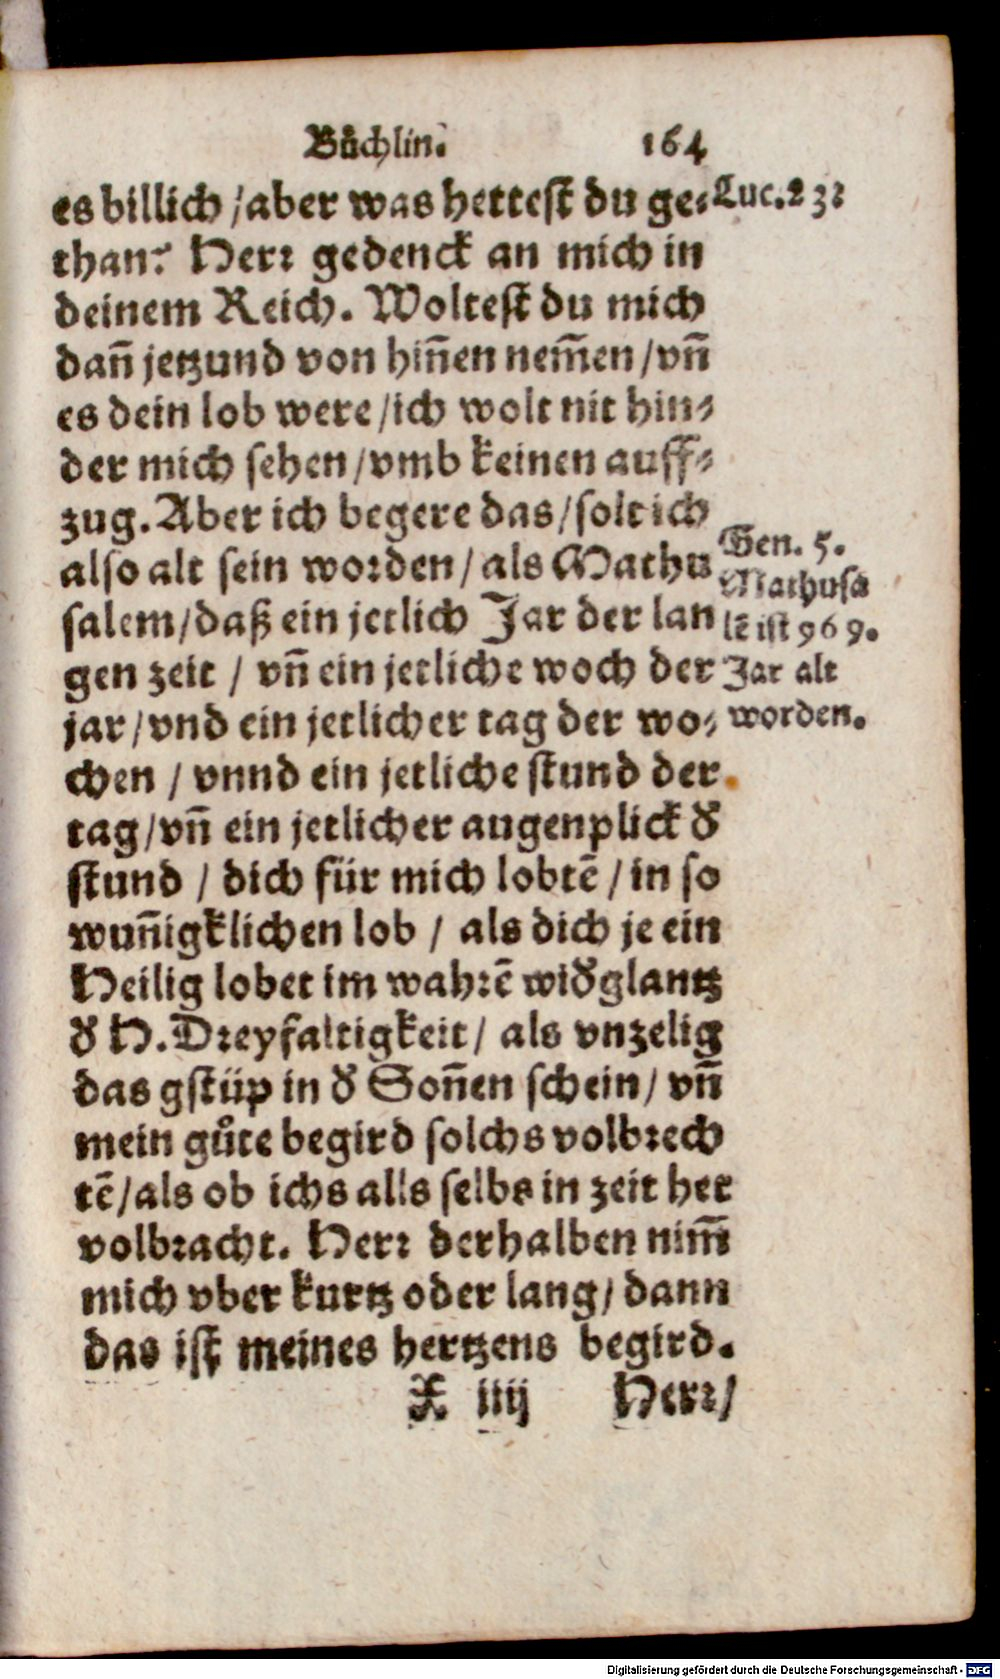 Bůchlin. 164
es billich / aber was hettest du ge-
than? Herr gedenck an mich in
deinem Reich. Woltest du mich
dañ jetzund von hiñen nem̃en / vñ
es dein lob were / ich wolt nit hin-
der mich sehen / vmb keinen auff-
zug. Aber ich begere das / solt ich
also alt sein worden / als Mathu
salem / daß ein jetlich Jar der lan
gen zeit / vñ ein jetliche woch der
jar / vnd ein jetlicher tag der wo-
chen / vnnd ein jetliche stund der
tag / vñ ein jetlicher augenplick d̕
stund / dich für mich lobtē / in so
wuñigklichen lob / als dich je ein
Heilig lobet im wahrē wid̕glantz
d̕ H. Dreyfaltigkeit / als vnzelig
das gstüp in d̕ Soñen schein / vñ
mein gůte begird solchs volbrech
tē / als ob ichs alls selbs in zeit het
volbracht. Herr derhalben nim̃
mich vber kurtz oder lang / dann
das ist meines hertzens begird.
X iiij Herr /
Luc. 23.
Gen. 5.
Mathusa
lē ist 969.
Jar alt
worden.
Digitalisierung gefördert durch die Deutsche Forschungsgemeinschaft - DFG